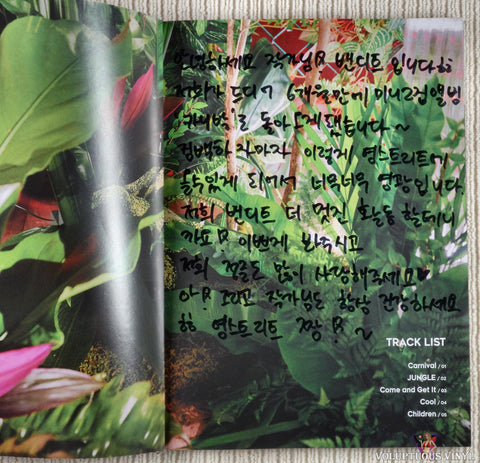 안녕하세요 작가님! 밴디트 입니다히
저희가 드디어 6개월만에 미니2집앨범
'카니발'로 돌아오게 됐습니다~
컴백하자마자 이렇게 영스트리트에
올수있게 되어서 너무너무 영광입니다
저희 밴디트 더 멋진 활동 할테니
까요! 이쁘게 봐주시고
저희 정글도 많이 사랑해주세요♥
아! 그리고 작가님도 항상 건강하세요
힝 영스트리트 짱!~
TRACK LIST
Carnival / 01
JUNGLE / 02
Come and Get It / 03
Cool / 04
Children / 05
VOLUPTUOUS VINYL